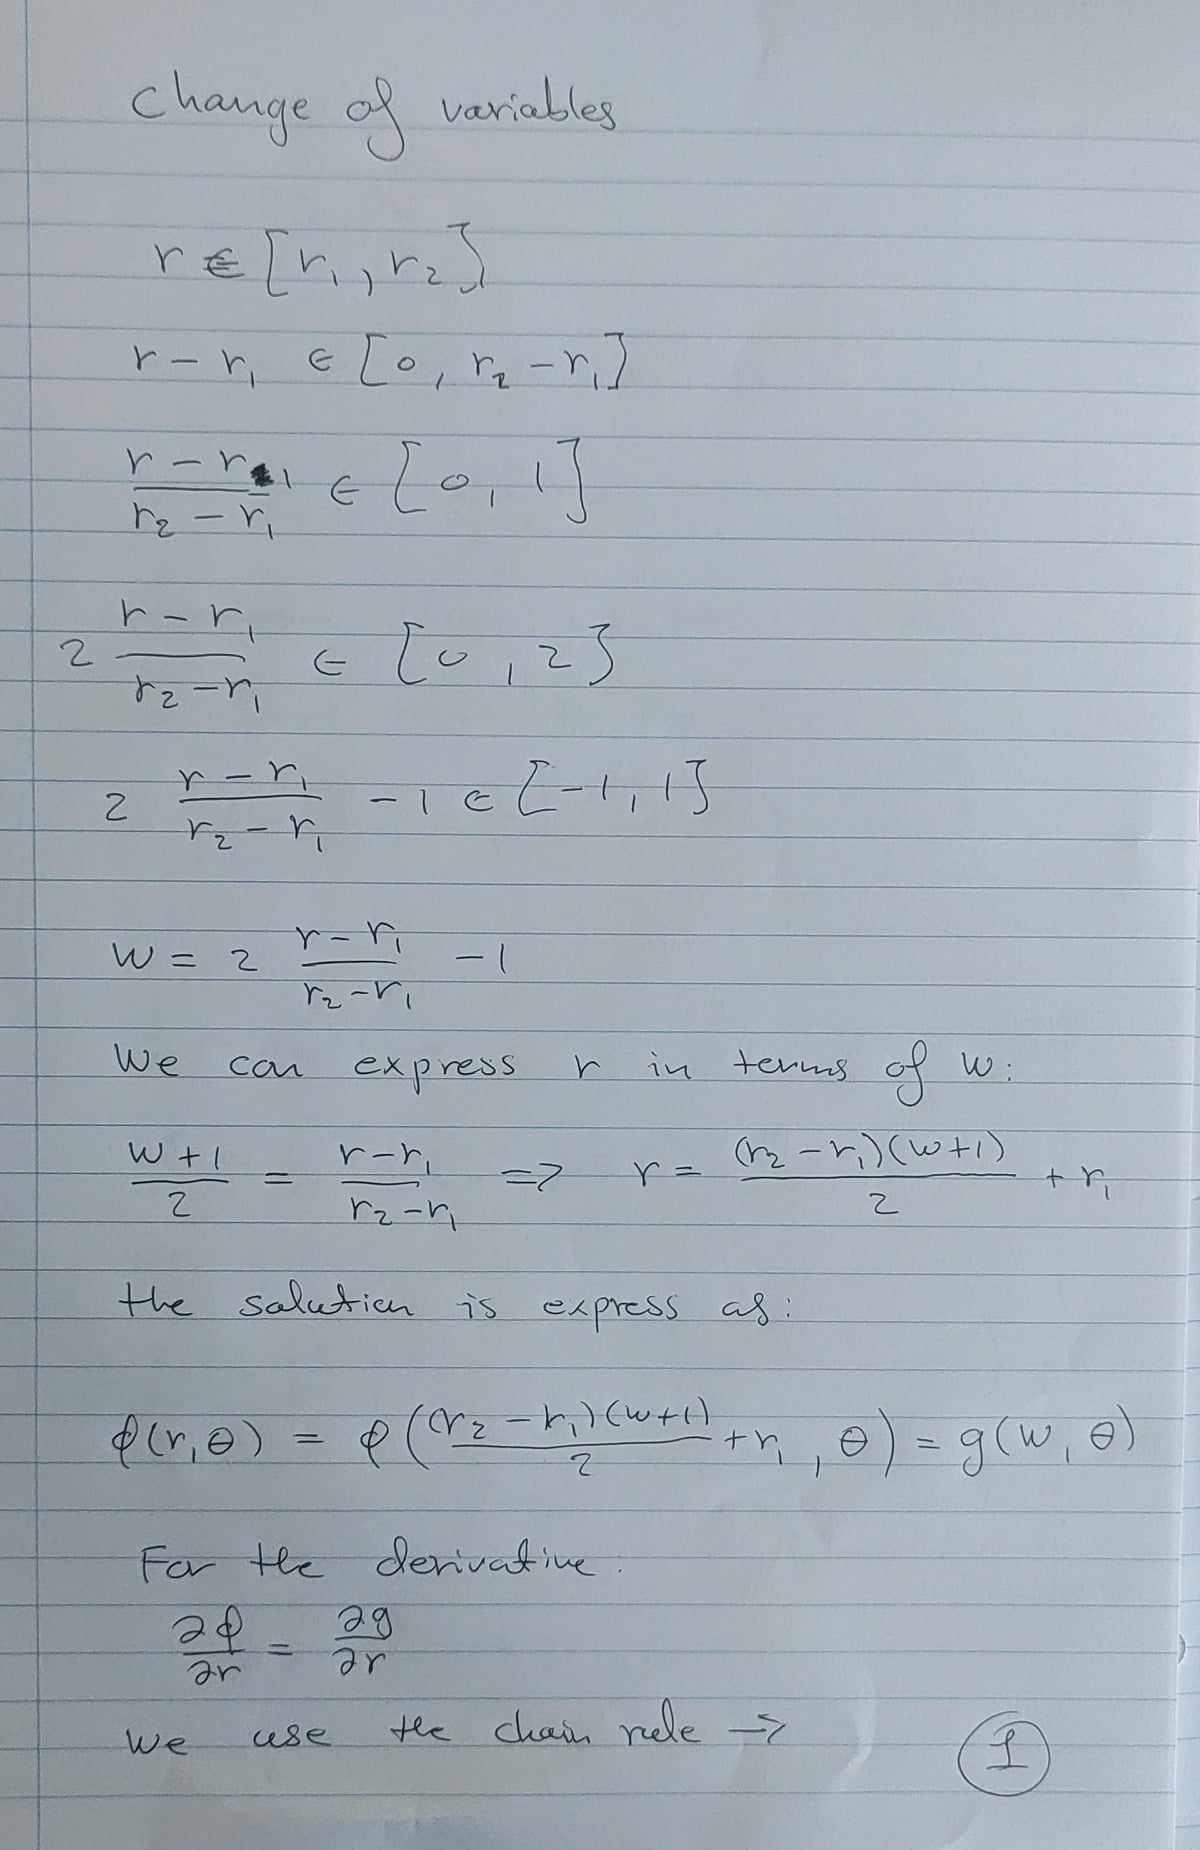 Change of variables
r ∈ [r₁, r₂]
r - r₁ ∈ [0, r₂ - r₁]
(r - r₁)/(r₂ - r₁) ∈ [0, 1]
2 (r - r₁)/(r₂ - r₁) ∈ [0, 2]
2 (r - r₁)/(r₂ - r₁) - 1 ∈ [-1, 1]
w = 2 (r - r₁)/(r₂ - r₁) - 1
We can express r in terms of w:
(w + 1)/2 = (r - r₁)/(r₂ - r₁) => r = (r₂ - r₁)(w+1)/2 + r₁
the solution is express as:
ϕ(r, θ) = ϕ((r₂ - r₁)(w+1)/2 + r₁, θ) = g(w, θ)
For the derivative:
∂ϕ/∂r = ∂g/∂r
We use the chain rule →
1